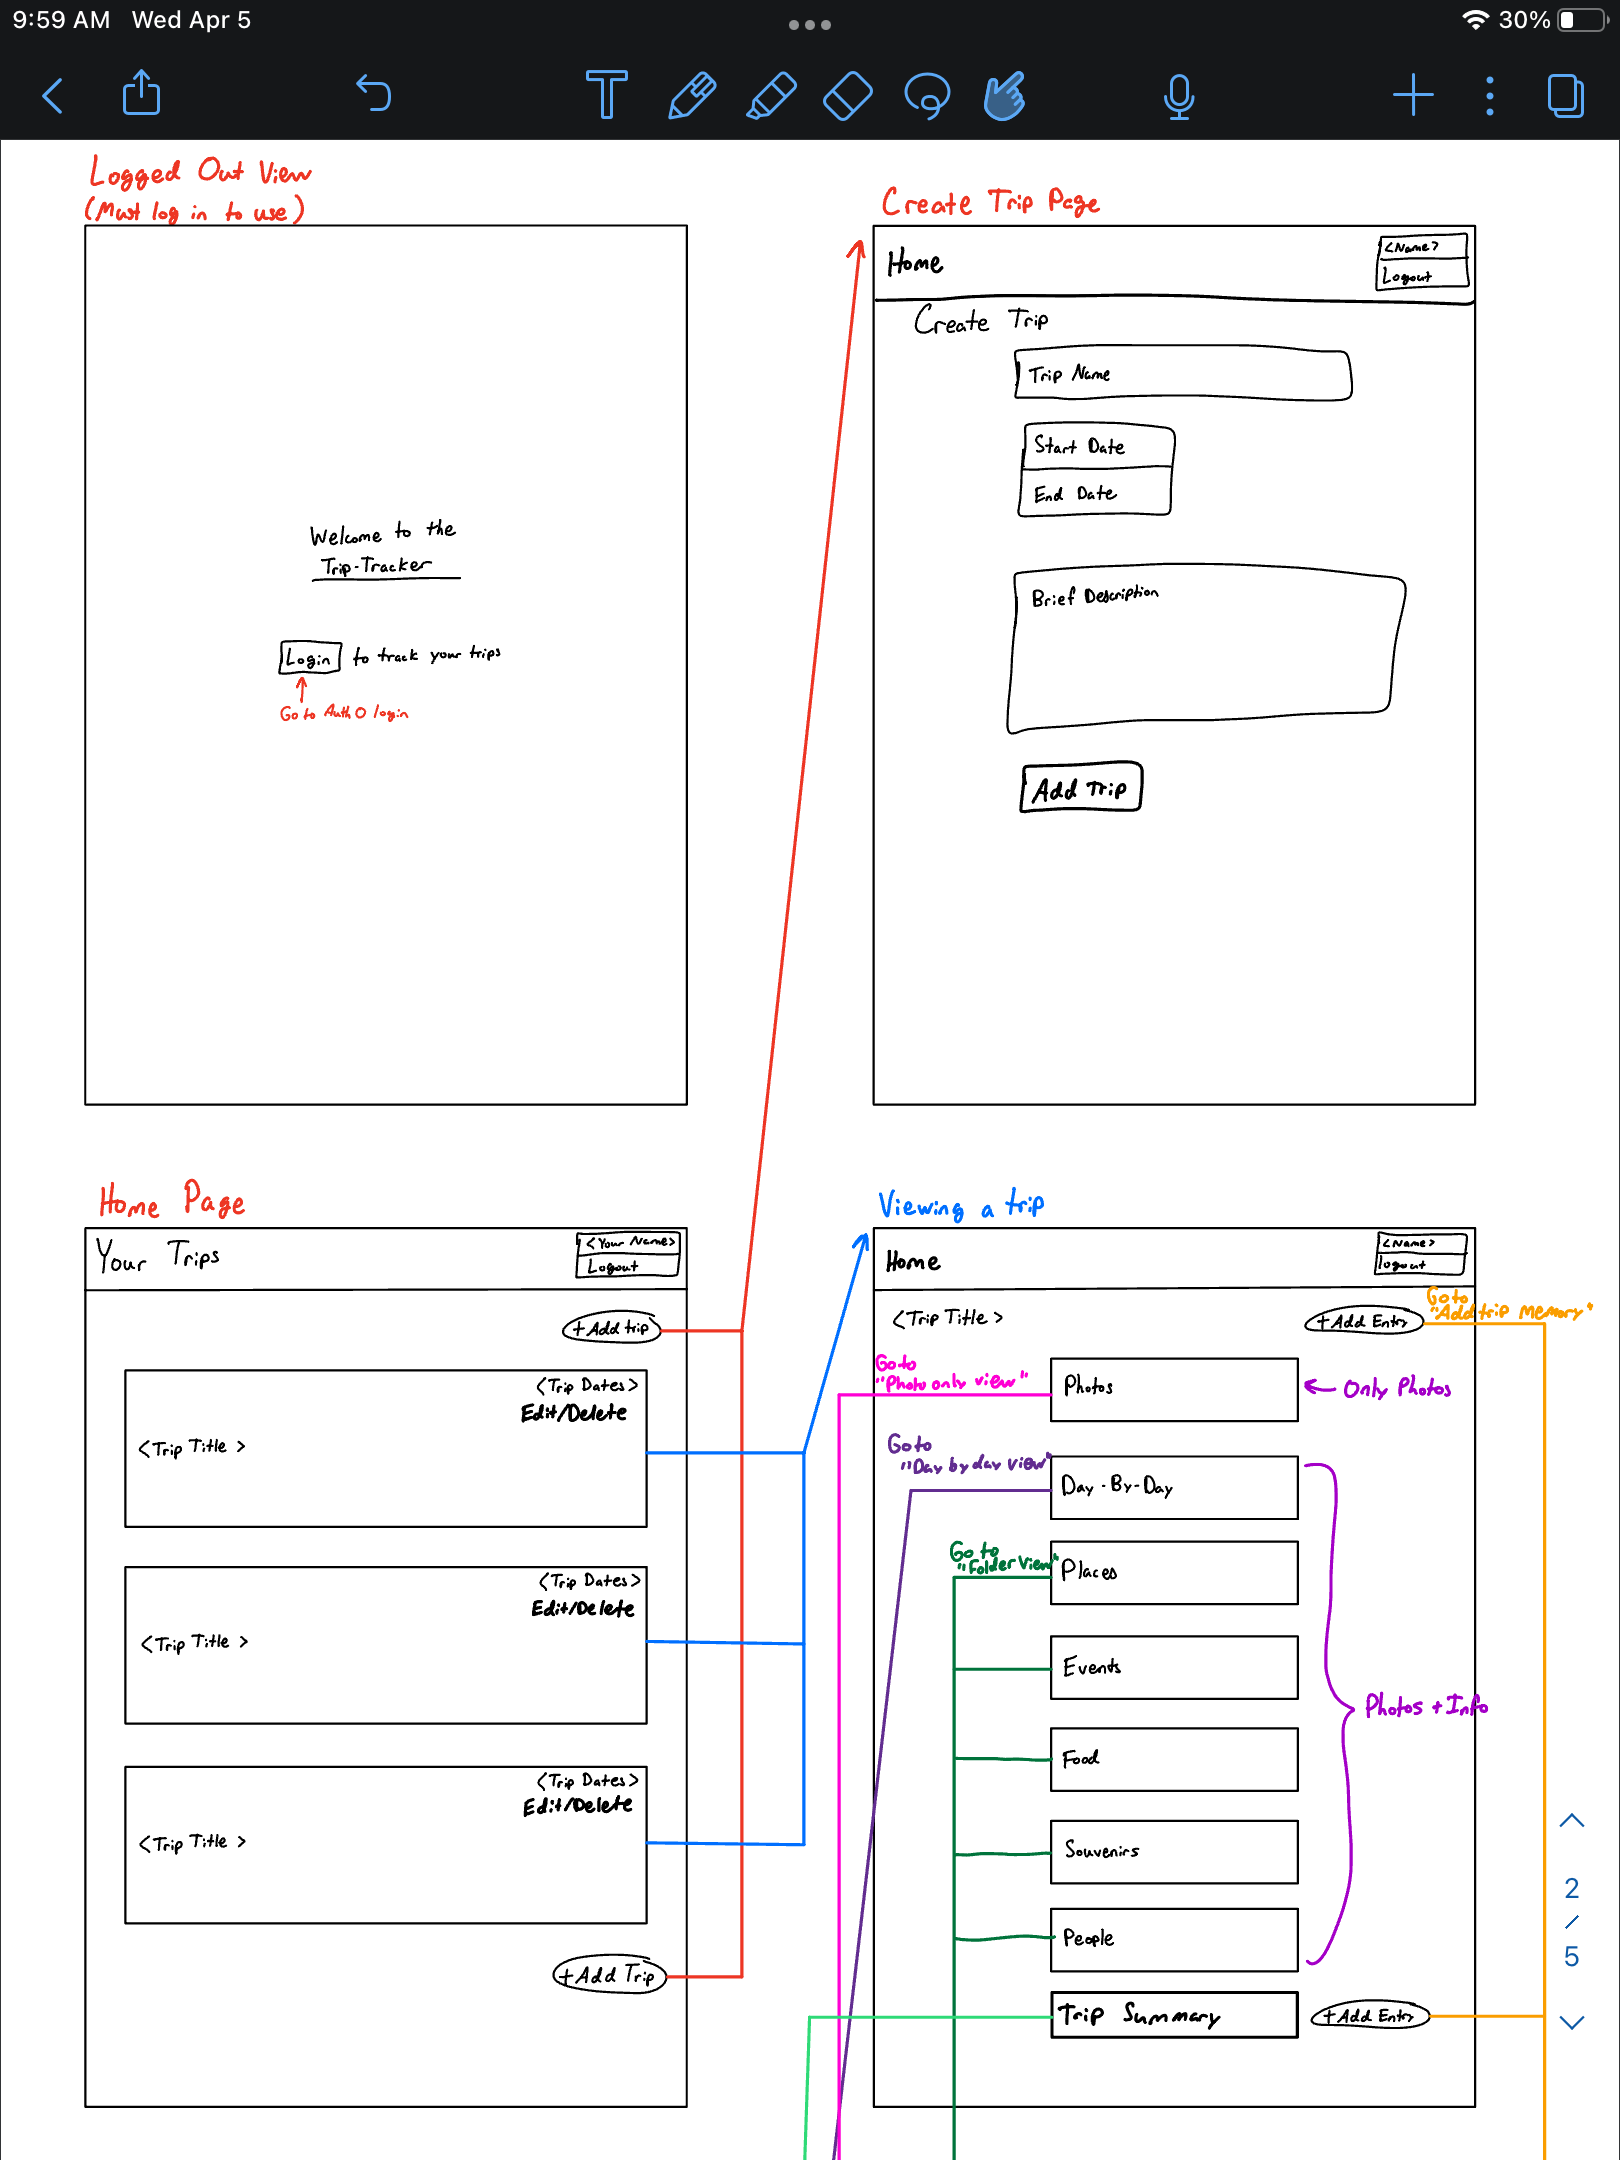 9:59 AM Wed Apr 5
30%
Logged Out View
(Must log in to use)
Welcome to the
Trip-Tracker
Login to track your trips
Go to Auth0 login
Create Trip Page
Home
<Name>
Logout
Create Trip
Trip Name
Start Date
End Date
Brief Description
Add Trip
Home Page
Your Trips
<Your Name>
Logout
+Add trip
<Trip Dates>
Edit/Delete
<Trip Title>
<Trip Dates>
Edit/Delete
<Trip Title>
<Trip Dates>
Edit/Delete
<Trip Title>
+Add Trip
Viewing a trip
Home
<Name>
logout
<Trip Title>
+Add Entry
Go to
"Add trip memory"
Go to
"Photo only view"
Photos
Only Photos
Go to
"Day by day view"
Day-By-Day
Go to
"Folder View"
Places
Events
Photos + Info
Food
Souvenirs
People
Trip Summary
+Add Entry
2
/
5